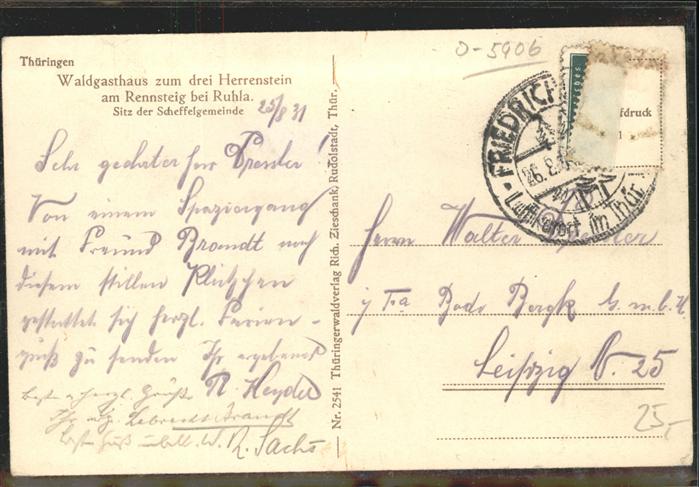 Thüringen
Waldgasthaus zum drei Herrenstein
am Rennsteig bei Ruhla.
Sitz der Scheffelgemeinde
25/8 31
Sehr geehrter Herr Pressler!
Von einem Spaziergang
mit Freund Brandt nach
diesem stillen Plätzchen
gestattet sich herzl. Ferien-
gruß zu senden Ihr ergebenst
R. Heyder
Beste u. herzl. Grüße
Ihr
R. Sachs
Nr. 2541 Thüringerwaldverlag Rich. Zieschank, Rudolstadt, Thür.
D-5906
FRIEDRICH
26.8.
Luftkurort im Thür.
druck
Herrn Walter Pressler
i/Fa Bodo Bergk G.m.b.H
Leipzig N. 25
25,-